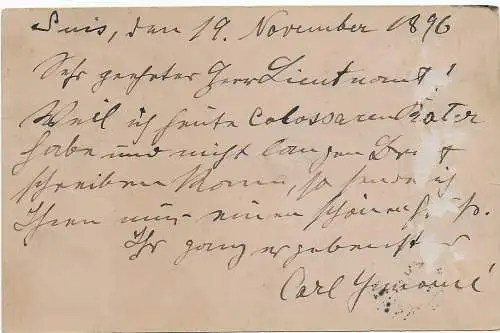 Suis, den 19. November 1896
Sehr geehrter Herr Lieutnant!
Weil ich heute colossaren Kater
habe und nicht langen Brief
schreiben kann, so sende ich
Ihnen nur einen schönen
Ihr ganz ergebenst
Carl